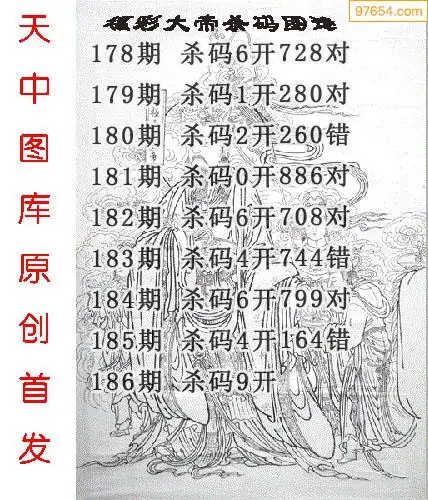 97654.com
福彩大帝杀码图迷
天中图库原创首发
178期 杀码6开728对
179期 杀码1开280对
180期 杀码2开260错
181期 杀码0开886对
182期 杀码6开708对
183期 杀码4开744错
184期 杀码6开799对
185期 杀码4开164错
186期 杀码9开